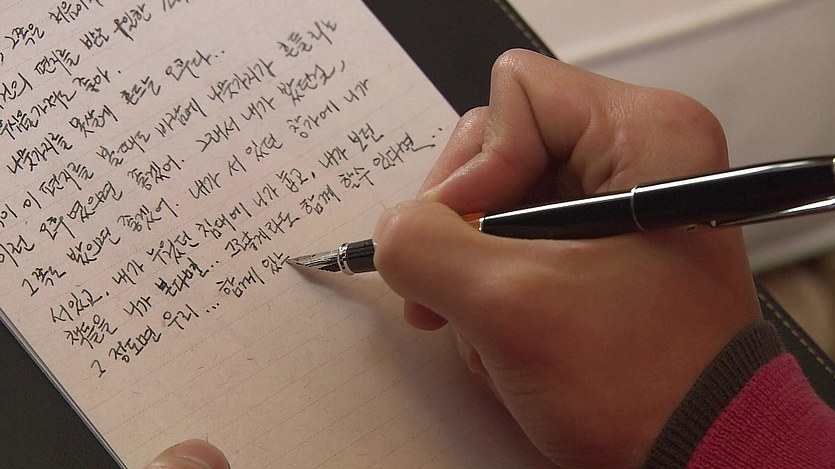 그쪽은 처음이지
편지를 받은 유일한
좋아.
나뭇가지를 흔드는 오후다...
이 편지를 볼때는 바람에 나뭇가지가 흔들리는
이런 오후였으면 좋겠어. 그래서 내가 봤던것,
그쪽도 봤으면 좋겠어. 내가 서 있던 창가에 내가
서있고, 내가 누웠던 침대에 내가 눕고, 내가 보던
책들을 내가 본다면... 그렇게라도 함께 할수 있다면..
그 정도면 우리... 함께 있